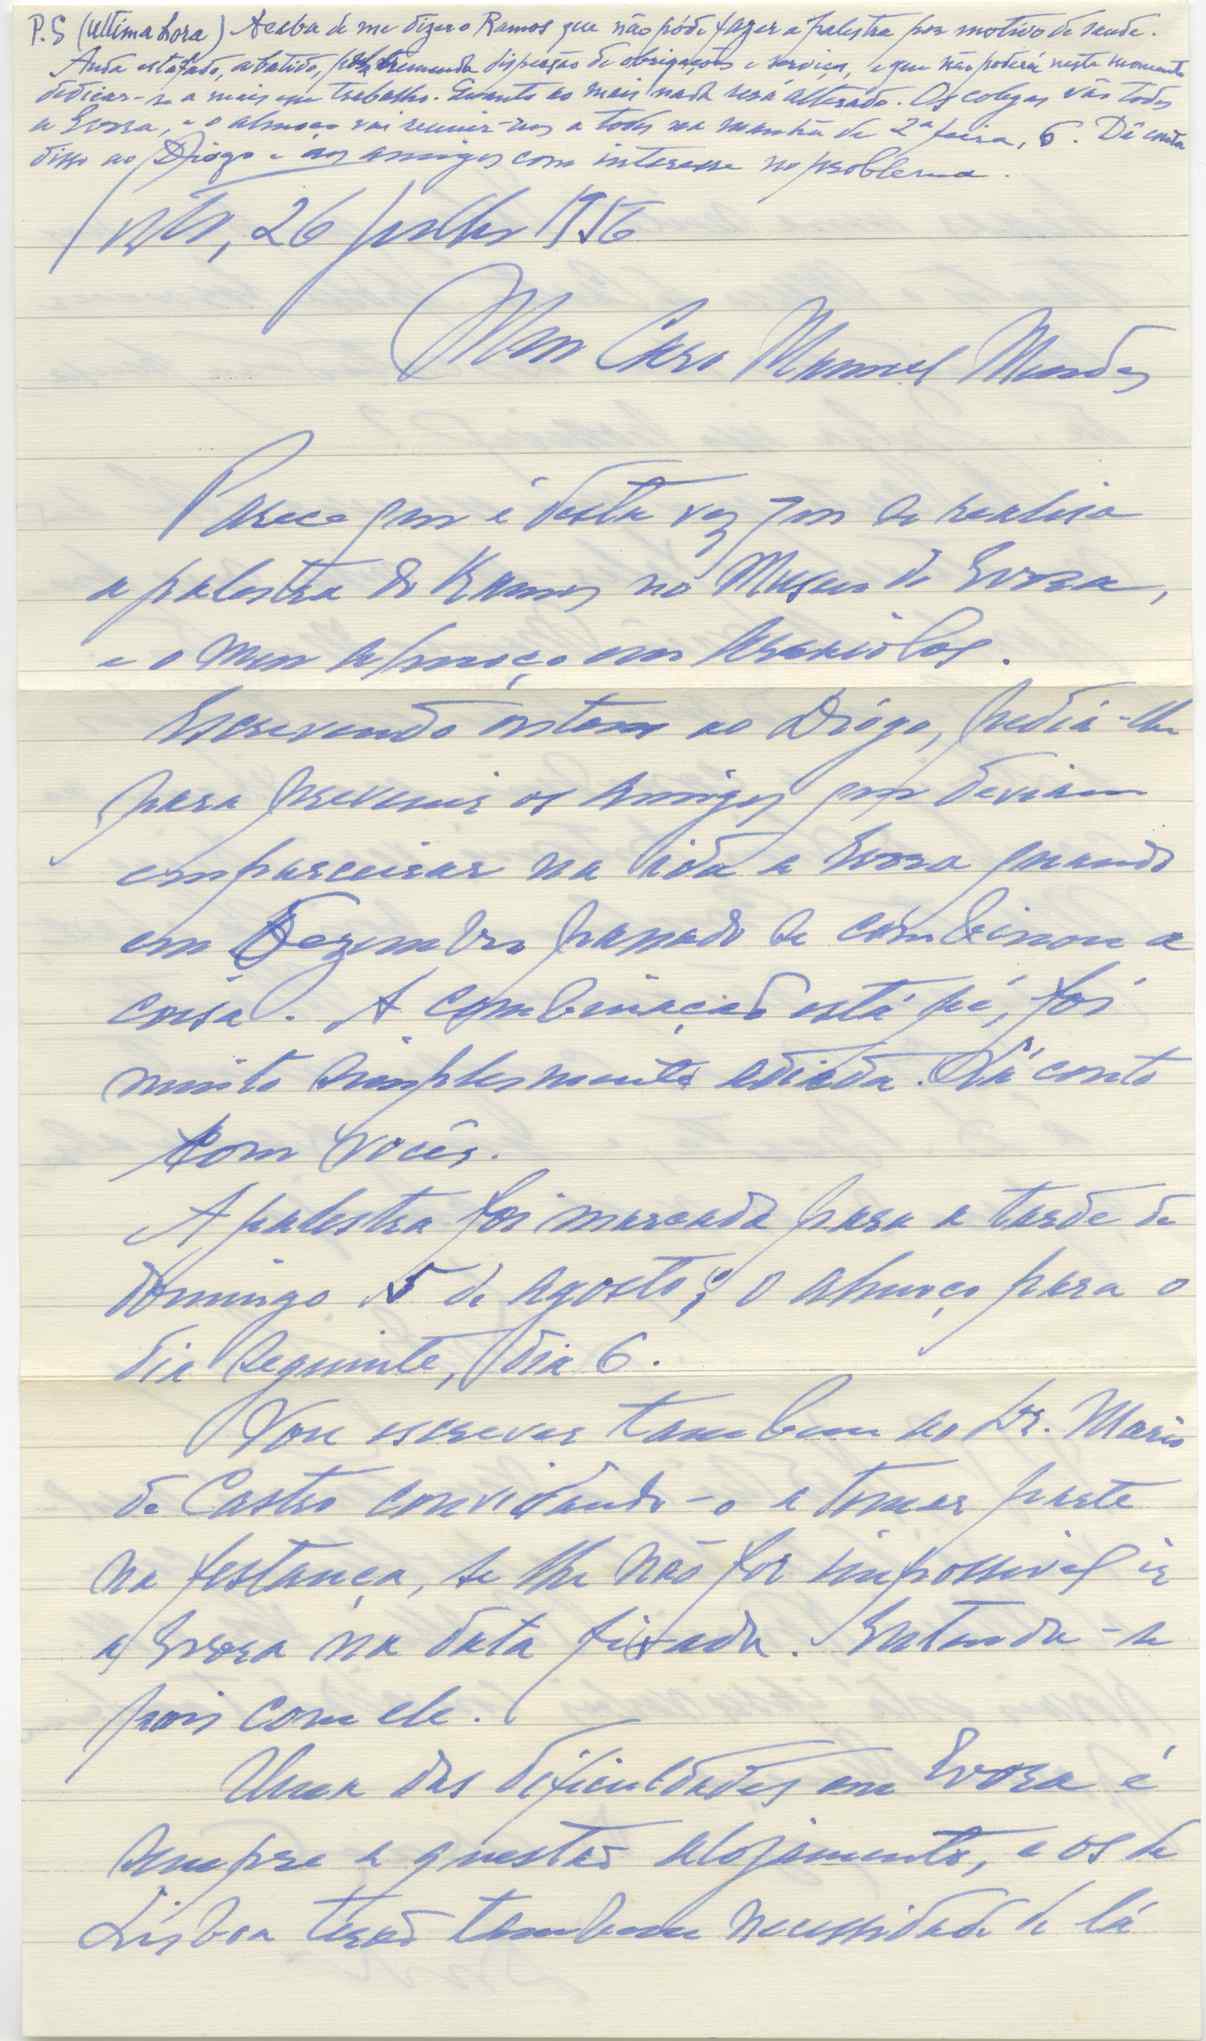 P.S (ultima hora) Acaba de me dizer o Ramos que não póde fazer a palestra por motivo de saude.
Anda estafado, abatido, pela tremenda dispersão de obrigações e serviços, e que não poderá neste momento
dedicar-se a mais um trabalho. Quanto ao mais nada será alterado. Os colegas vão todos
a Evora, e o almoço vai reunir-nos a todos na manhã de 2ª feira, 6. Dê conta
disso ao Diogo e aos amigos com interesse no problema.
26 Julho 1956
Meu Caro Manuel Mendes
Parece que é desta vez que se realisa
a palestra do Ramos no Museu de Evora,
e o meu almoço em Arraiolos.
Escrevendo ontem ao Diógo, pedia-lhe
para prevenir os amigos que deviam
emparceirar na ida a Evora quando
em Dezembro passado se combinou a
coisa. A combinação está pé, foi
muito simplesmente adiada. Lá conto
com vocês.
A palestra foi marcada para a tarde de
domingo 5 de agosto; o almoço para o
dia seguinte, dia 6.
Vou escrever tambem ao Dr. Mario
de Castro convidando-o a tomar parte
na festança, se lhe não for impossivel ir
a Evora na data fixada. Entenda-se
pois com ele.
Uma das dificuldades em Evora é
sempre a questão alojamento, e os de
Lisboa terão tambem necessidade de lá